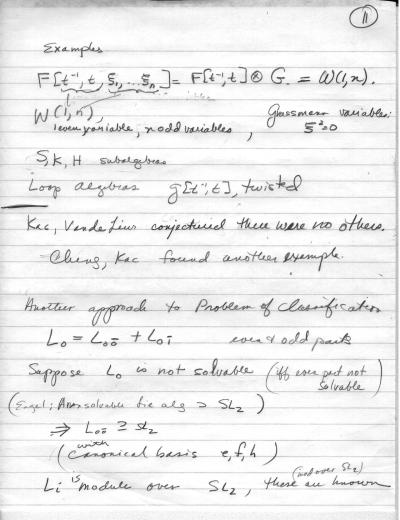 11
Examples
F[t⁻¹, t, ξ₁, ... ξₙ] = F[t⁻¹, t] ⊗ G. = W(1, n).
W(1, n),
1 even variable, n odd variables, Grassmann variables: ξ² = 0
S, K, H subalgebras
Loop algebras g[t⁻¹, t], twisted
Kac, Van de Liur conjectured there were no others.
Cheng, Kac found another example.
Another approach to Problem of Classification
L₀ = L₀₀̄ + L₀₁̄ even & odd parts
Suppose L₀ is not solvable (iff even part not solvable)
(Engel; A nonsolvable Lie alg ⊃ SL₂)
⇒ L₀₀̄ ⊇ sl₂
(with canonical basis e, f, h)
Li is module over SL₂, these are known (mod over SL₂)